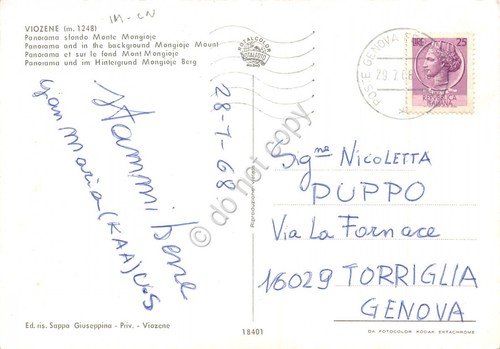 IM-CN
VIOZENE (m. 1248)
Panorama sfondo Monte Mongioje
Panorama and in the background Mongioje Mount
Panorama et sur le fond Mont Mongioje
Panorama und im Hintergrund Mongioje Berg
ROTALCOLOR
ROTALFOTO
MILANO
POSTE GENOVA
29.7.68
LIRE 25
REPVBBLICA
ITALIANA
Stammi bene
Gian Maria (KAA) U.S
28-7-68
do not copy
Riproduzione
Sig.na NICOLETTA
PUPPO
Via La Fornace
16029 TORRIGLIA
GENOVA
Ed. ris. Sappa Giuseppina - Priv. - Viozene
18401
DA FOTOCOLOR KODAK EKTACHROME